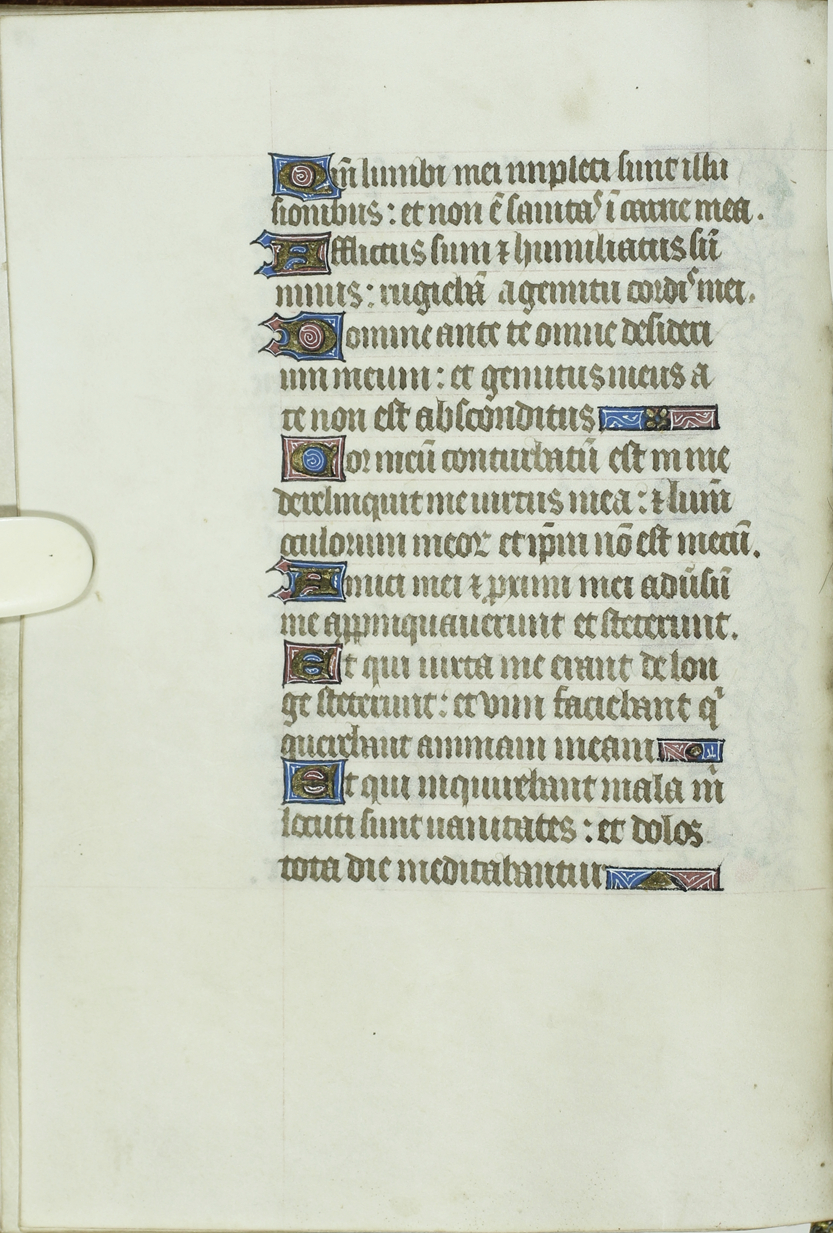 Qm̄ lumbi mei impleti sunt illu
sionibus : et non ē sanitas ī carne mea .
Afflictus sum ⁊ humiliatus sū
nimis : rugiebā a gemitu cordis mei .
Domine ante te omne desideri
um meum : et gemitus meus a
te non est absconditus
Cor meū conturbatū est in me
dereliquit me uirtus mea : ⁊ lum̄
oculorum meoꝝ et ip̄m nō est mecū .
Amici mei ⁊ proximi mei adūsū
me appropinquauerunt et steterunt .
Et qui iuxta me erant de lon
ge steterunt : et vim faciebant qͥ
querebant animam meam
Et qui inquirebant mala m̄
locuti sunt uanitates : et dolos
tota die meditabantur